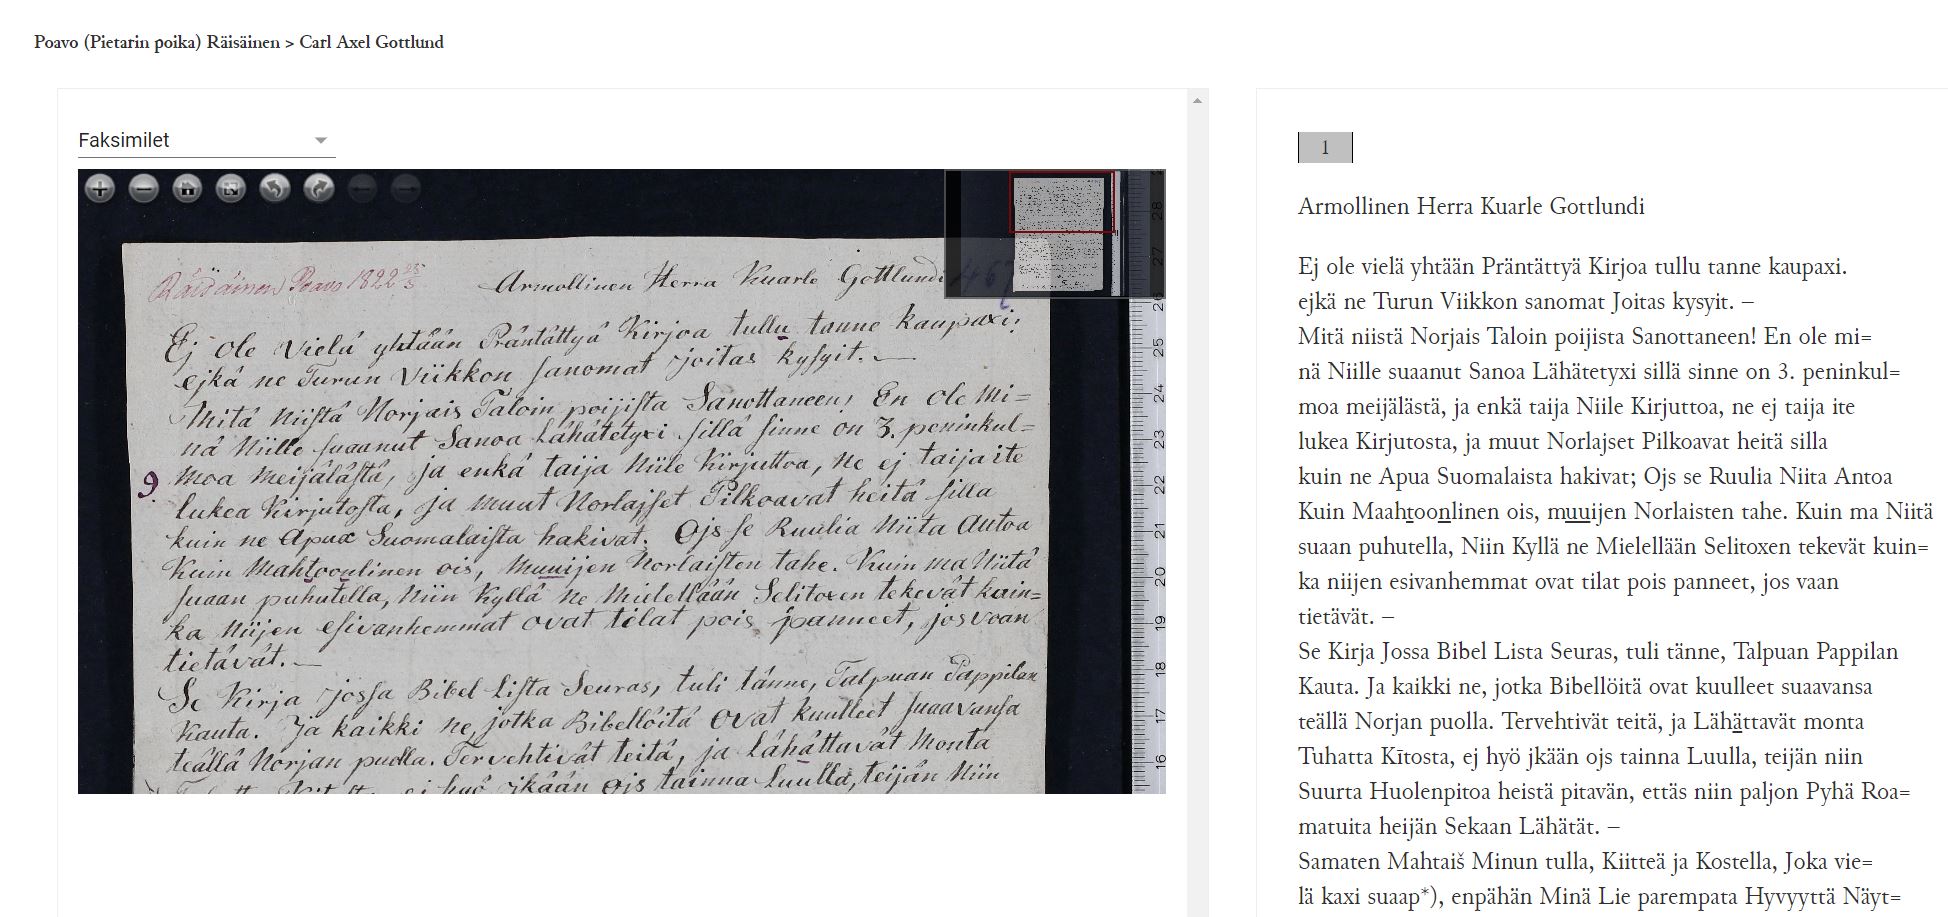 Poavo (Pietarin poika) Räisäinen > Carl Axel Gottlund
Faksimilet
Räisäinen Poavo 1822 25/3
Armollinen Herra Kuarle Gottlundi
Ej ole vielä yhtään Präntättyä Kirjoa tullu tanne kaupaxi;
ejkä ne Turun Viikkon sanomat joitas kysyit. —
Mitä niistä Norjais Taloin poijista Sanottaneen! En ole mi=
nä Niille suaanut Sanoa Lähätetyxi sillä sinne on 3. peninkul=
9. moa meijälästä, ja enkä taija Niile Kirjuttoa, ne ej taija ite
lukea Kirjutosta, ja muut Norlajset Pilkoavat heitä silla
kuin ne Apua Suomalaista hakivat. Ojs se Ruulia Niita Antoa
Kuin Mahtoonlinen ois, muuijen Norlaisten tahe. Kuin ma Niitä
suaan puhutella, Niin Kyllä ne Mielellään Selitoxen tekevät kuin=
ka Niijen esivanhemmat ovat tilat pois panneet, jos voan
tietävät. —
Se Kirja jossa Bibel Lista Seuras, tuli tänne, Talpuan Pappilan
Kauta. Ja kaikki ne, jotka Bibellöitä ovat kuulleet suaavansa
teällä Norjan puolla. Tervehtivät teitä, ja Lähättavät Monta
ej hyö jkään ojs tainna Luulla, teijän Niin
28
27
26
25
24
23
22
21
20
19
18
17
16
1
Armollinen Herra Kuarle Gottlundi
Ej ole vielä yhtään Präntättyä Kirjoa tullu tanne kaupaxi.
ejkä ne Turun Viikkon sanomat Joitas kysyit. –
Mitä niistä Norjais Taloin poijista Sanottaneen! En ole mi=
nä Niille suaanut Sanoa Lähätetyxi sillä sinne on 3. peninkul=
moa meijälästä, ja enkä taija Niile Kirjuttoa, ne ej taija ite
lukea Kirjutosta, ja muut Norlajset Pilkoavat heitä silla
kuin ne Apua Suomalaista hakivat; Ojs se Ruulia Niita Antoa
Kuin Maahtoonlinen ois, muuijen Norlaisten tahe. Kuin ma Niitä
suaan puhutella, Niin Kyllä ne Mielellään Selitoxen tekevät kuin=
ka niijen esivanhemmat ovat tilat pois panneet, jos vaan
tietävät. –
Se Kirja Jossa Bibel Lista Seuras, tuli tänne, Talpuan Pappilan
Kauta. Ja kaikki ne, jotka Bibellöitä ovat kuulleet suaavansa
teällä Norjan puolla. Tervehtivät teitä, ja Lähättavät monta
Tuhatta Kītosta, ej hyö jkään ojs tainna Luulla, teijän niin
Suurta Huolenpitoa heistä pitavän, ettäs niin paljon Pyhä Roa=
matuita heijän Sekaan Lähätät. –
Samaten Mahtaiš Minun tulla, Kiitteä ja Kostella, Joka vie=
lä kaxi suaap*), enpähän Minä Lie parempata Hyvyyttä Näyt=